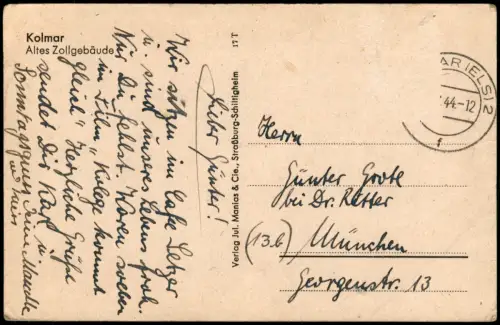 Kolmar
Altes Zollgebäude
Lieber Günter!
Wir sitzen im Cafe Setzer
u. sind unseres Lebens froh.
Nur Du fehlst. Waren soeben
im Film "Kluge kommt
gleich" Herzliche Grüße
sendet Dir Karl u.
Sonntagsgruß
Verlag Jul. Manias & Cie., Straßburg-Schiltigheim
17 T
AR (ELS) 2
44.-12
f
Herrn
Günter Grote
bei Dr. Retter
(13b) München
Georgenstr. 13